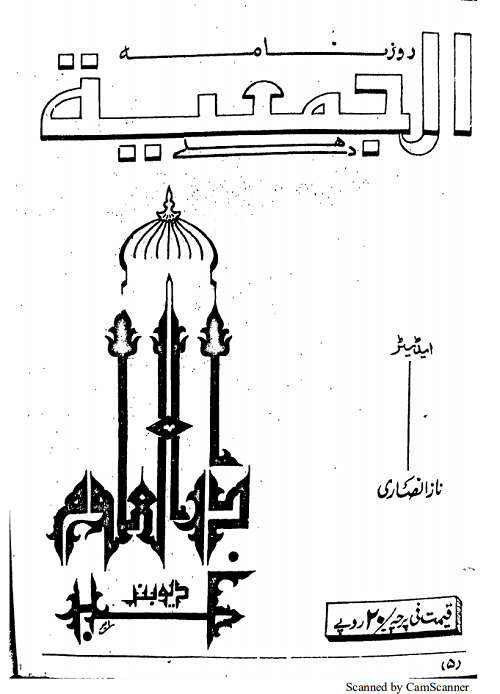 روزنامہ
الجمعیۃ
دھلی
ایڈیٹر
ناز انصاری
دیوبند
نمبر
قیمت فی پرچہ/۲۰ روپے
(۵)
Scanned by CamScanner